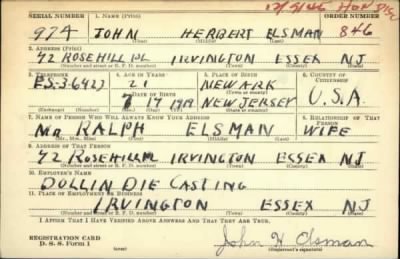 12/5/46 HON DISC
SERIAL NUMBER 1. NAME (Print) ORDER NUMBER
974 JOHN HERBERT ELSMAN 846
(First) (Middle) (Last)
2. ADDRESS (Print)
42 ROSEHILL PL IRVINGTON ESSEX NJ
(Number and street or R. F. D. number) (Town) (County) (State)
3. TELEPHONE 4. AGE IN YEARS 5. PLACE OF BIRTH 6. COUNTRY OF CITIZENSHIP
ES-3-6427 21 NEWARK
DATE OF BIRTH (Town or county)
7 17 1919 NEW JERSEY U.S.A.
(Exchange) (Number) (Mo.) (Day) (Yr.) (State or country)
7. NAME OF PERSON WHO WILL ALWAYS KNOW YOUR ADDRESS 8. RELATIONSHIP OF THAT PERSON
MR RALPH ELSMAN WIFE
(Mr., Mrs., Miss) (First) (Middle) (Last)
9. ADDRESS OF THAT PERSON
42 ROSEHILL PL IRVINGTON ESSEX NJ
(Number and street or R. F. D. number) (Town) (County) (State)
10. EMPLOYER'S NAME
DOLLIN DIE CASTING
11. PLACE OF EMPLOYMENT OR BUSINESS
IRVINGTON ESSEX NJ
(Number and street or R. F. D. number) (Town) (County) (State)
I AFFIRM THAT I HAVE VERIFIED ABOVE ANSWERS AND THAT THEY ARE TRUE.
REGISTRATION CARD
D. S. S. Form 1 John H Elsman
(Registrant's signature)